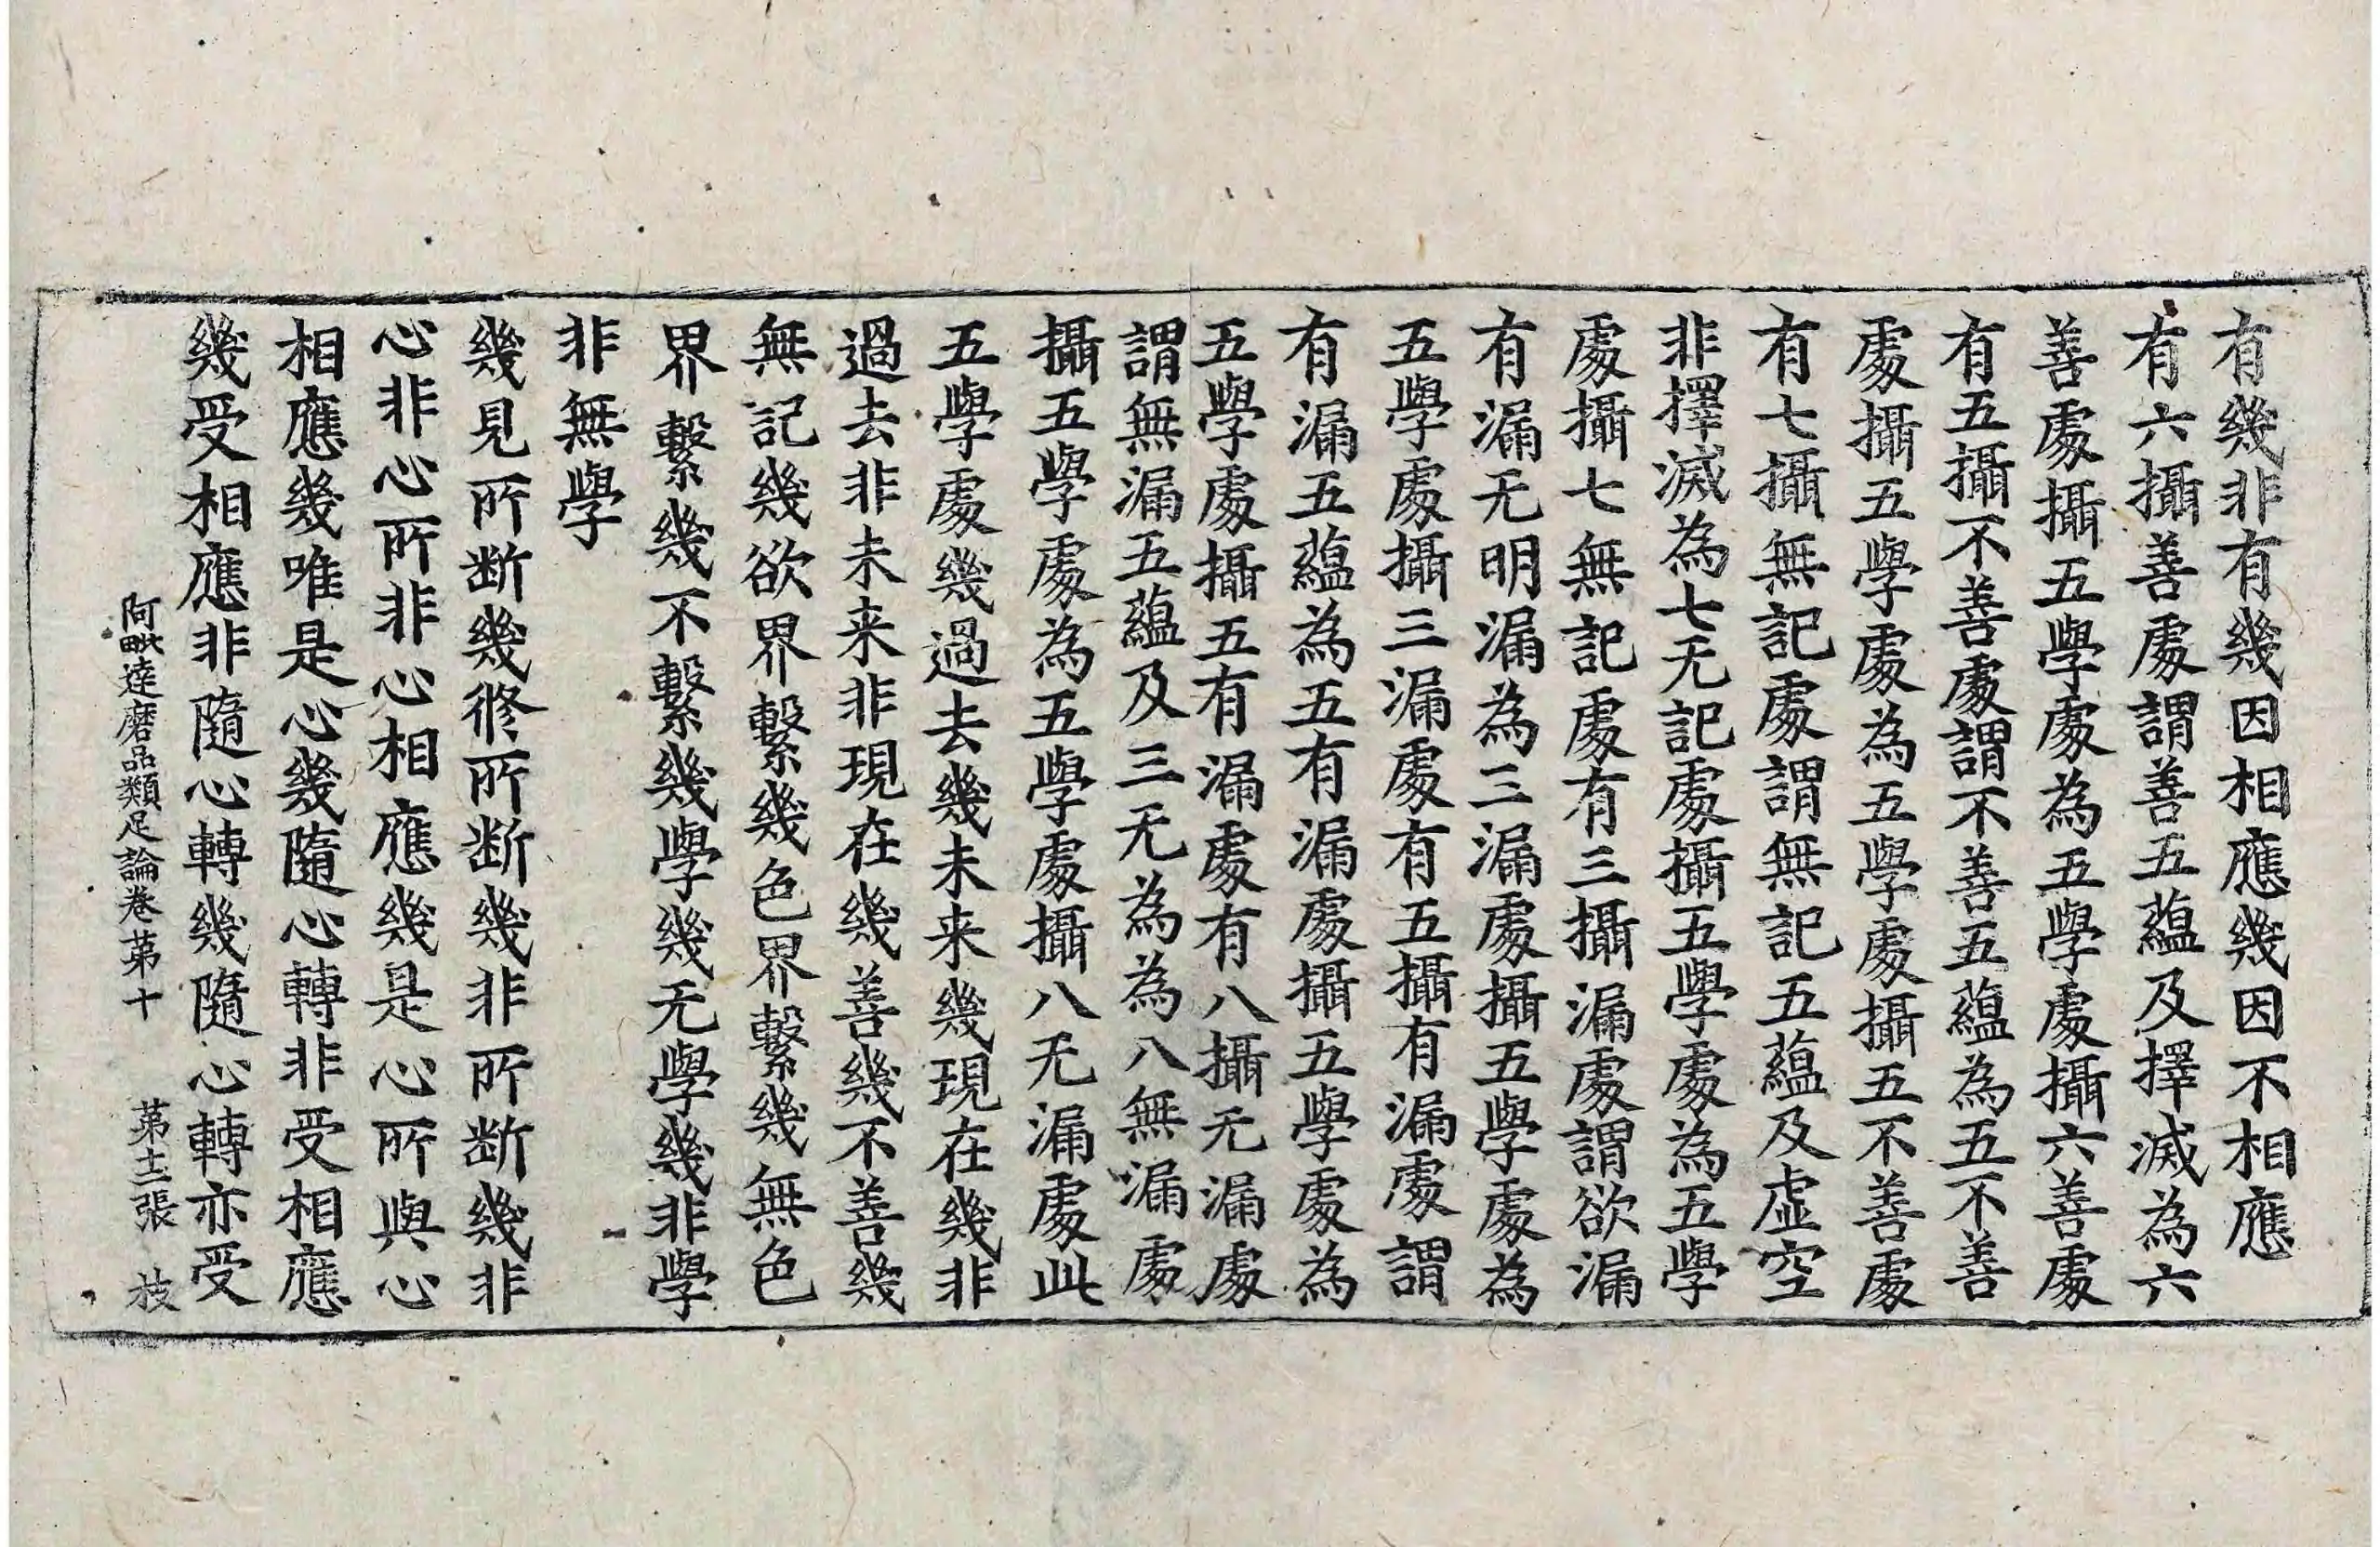 有幾非有幾因相應幾因不相應
有六攝善處謂善五蘊及擇滅為六
善處攝五學處為五學處攝六善處
有五攝不善處謂不善五蘊為五不善
處攝五學處為五學處攝五不善處
有七攝無記處謂無記五蘊及虛空
非擇滅為七无記處攝五學處為五學
處攝七無記處有三攝漏處謂欲漏
有漏无明漏為三漏處攝五學處為
五學處攝三漏處有五攝有漏處謂
有漏五蘊為五有漏處攝五學處為
五學處攝五有漏處有八攝无漏處
謂無漏五蘊及三无為為八無漏處
攝五學處為五學處攝八无漏處此
五學處幾過去幾未来幾現在幾非
過去非未来非現在幾善幾不善幾
無記幾欲界繫幾色界繫幾無色
界繫幾不繫幾學幾无學幾非學
非無學
幾見所断幾修所断幾非所断幾非
心非心所非心相應幾是心所與心
相應幾唯是心幾隨心轉非受相應
幾受相應非隨心轉幾隨心轉亦受
阿毗達磨品類足論卷苐十 苐十二張 枝